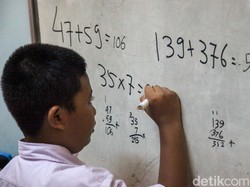 47+59=106
139+376=
35x7=
47
59 +
106
35
7 x
139
376 +
detikcom